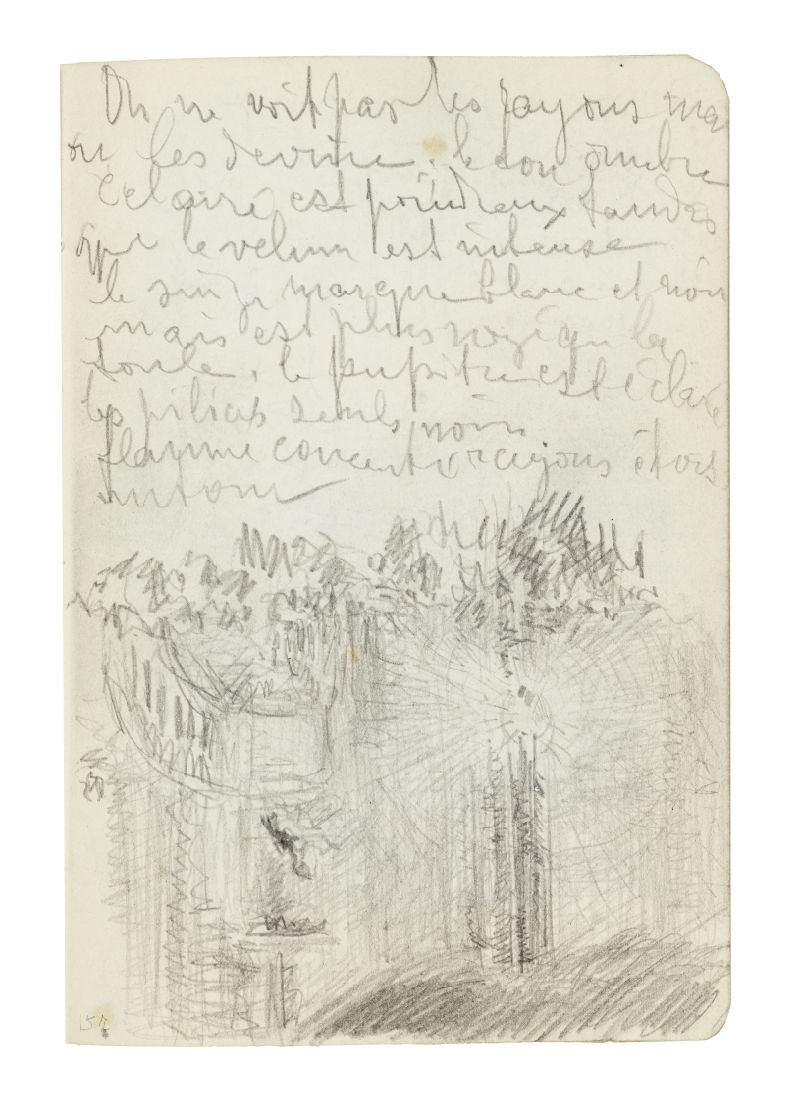 On ne voit pas les rayons mai
on les devine. le con ombre
éclairé est poudreux tandis
que le velum est intense
le singe marque blanc et noir
mais est plus rosé que la
toile, le pupitre est éclairé
les piliers seuls noirs
flamme concent rayons étoiles
autour
57